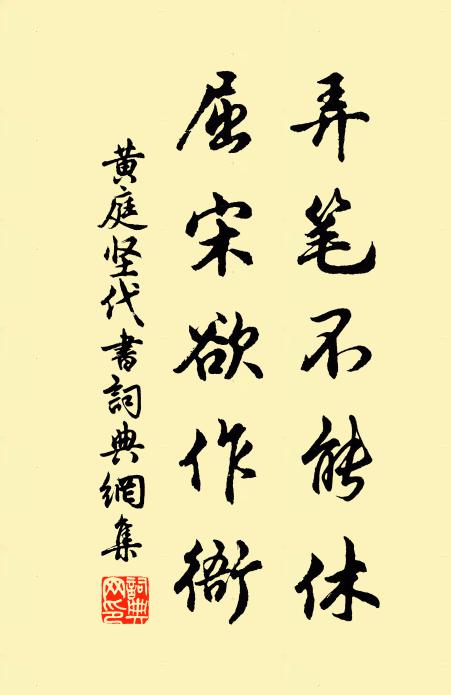 弄笔不能休
屈宋欲作衙
黄庭坚代書詞典網集
詞典网印